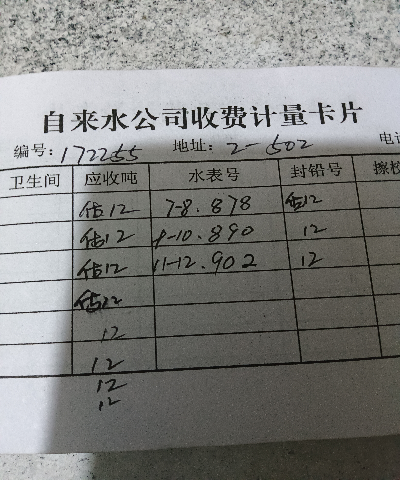 自来水公司收费计量卡片
编号: 172255 地址: 2-502 电话
卫生间 应收吨 水表号 封铅号 擦校
估12 7-8.878 估12
估12 9-10.890 12
估12 11-12.902 12
估12
12
12
12
12